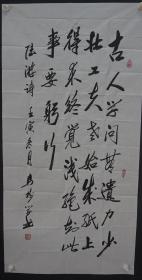 古人学问无遗力少
壮工夫老始成纸上
得来终觉浅绝知此
事要躬行
陆游诗 壬寅冬月